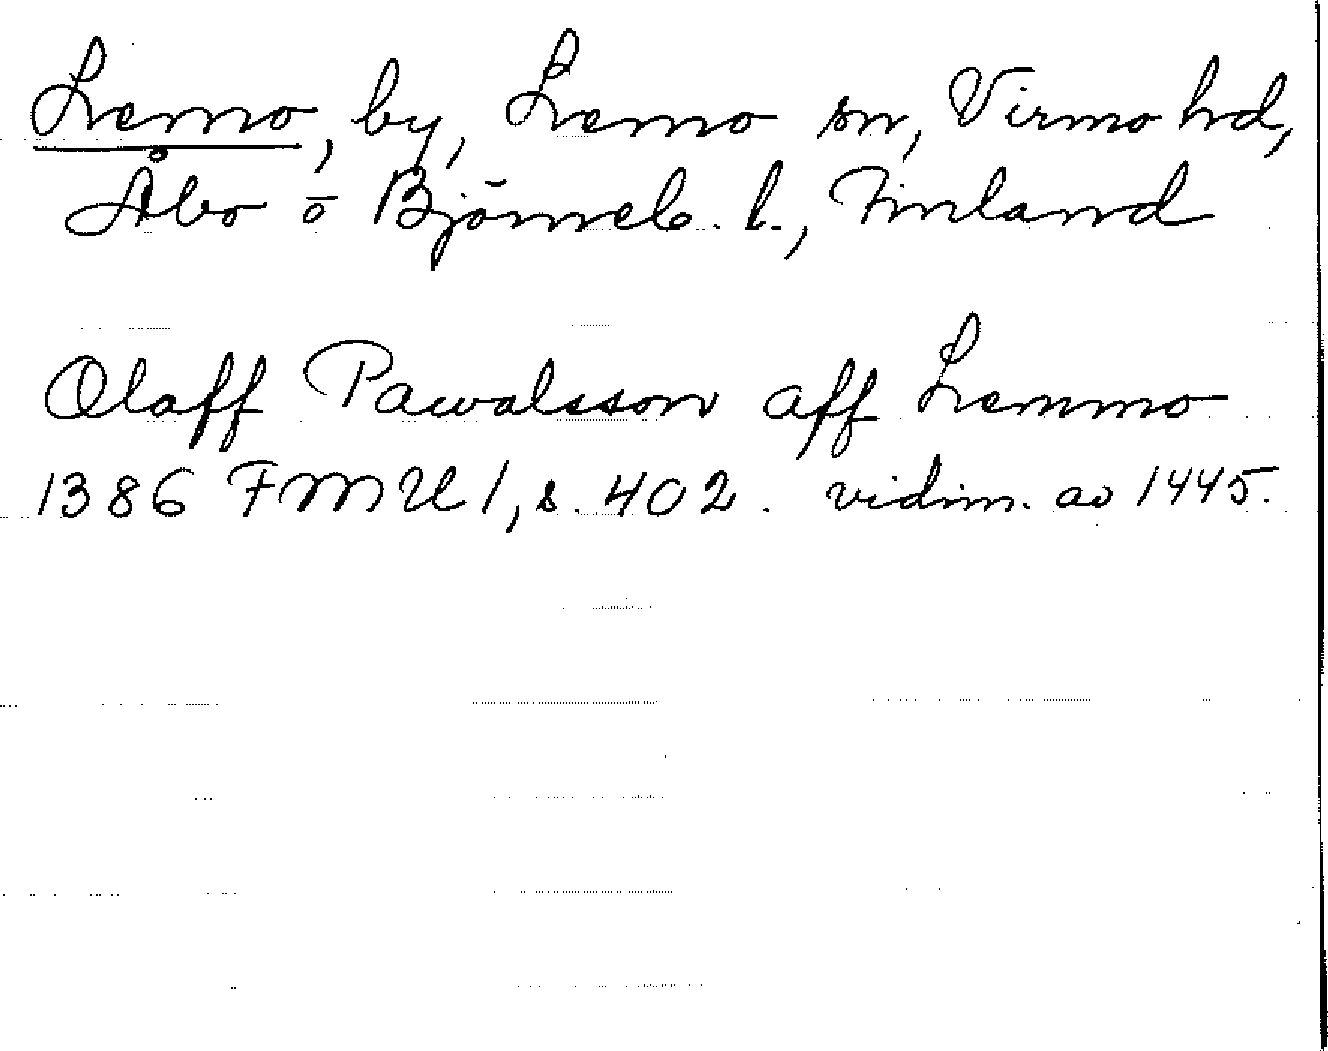 Lemo, by, Lemo sn, Virmo hd,
Åbo o Björneb. l., Finland
Olaff Pawalsson aff Lemmo
1386 FMU 1, s. 402. vidim. av 1445.